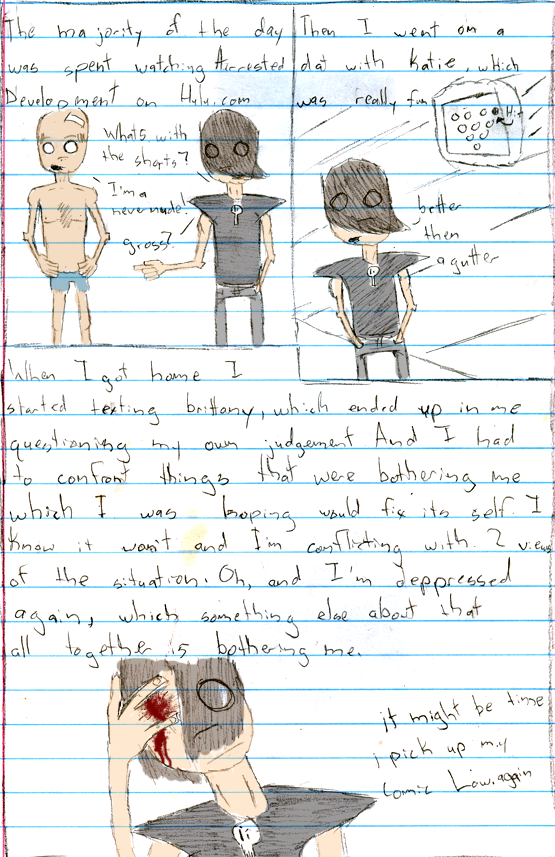 The majority of the day
was spent watching Arrested
Development on Hulu.com
Whats with
the shorts?
I'm a
nevernude!
gross?
Then I went on a
dat with Katie, which
was really fun
Hit
better
then
a gutter
When I got home I
started texting brittany, which ended up in me
questioning my own judgement And I had
to confront things that were bothering me
which I was hoping would fix its self. I
know it wont and I'm conflicting with 2 views
of the situation. Oh, and I'm deppressed
again, which something else about that
all together is bothering me.
it might be time
i pick up my
comic Low. again